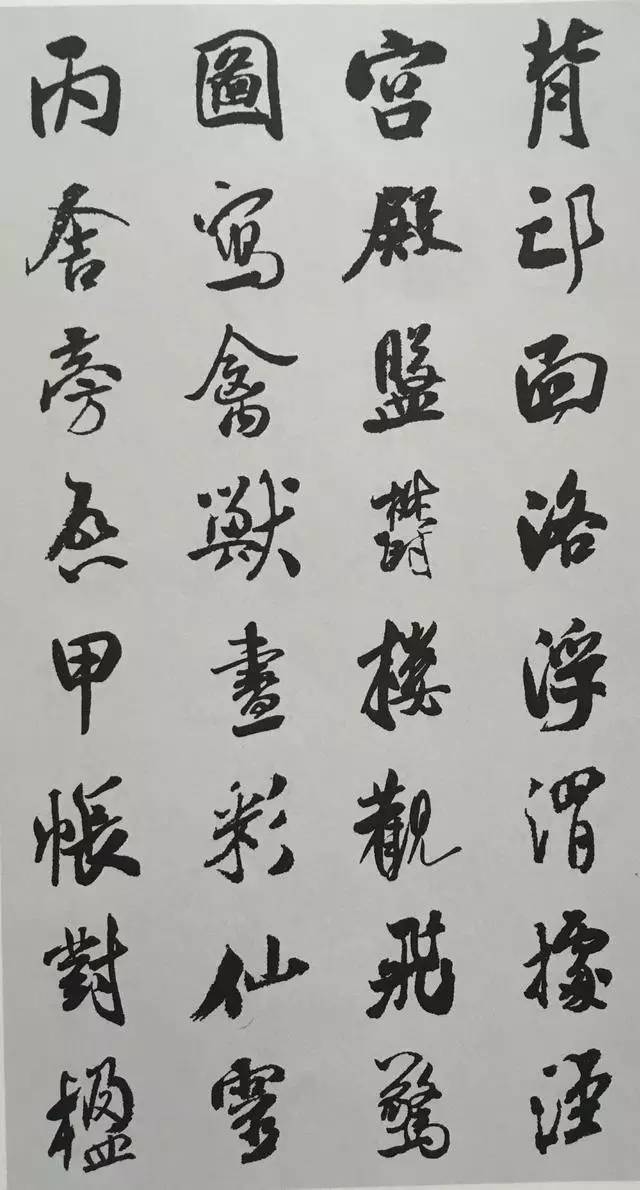 背邙面洛浮渭據涇
宮殿盤欝樓觀飛驚
圖寫禽獸畫彩仙靈
丙舍旁啓甲帳對楹